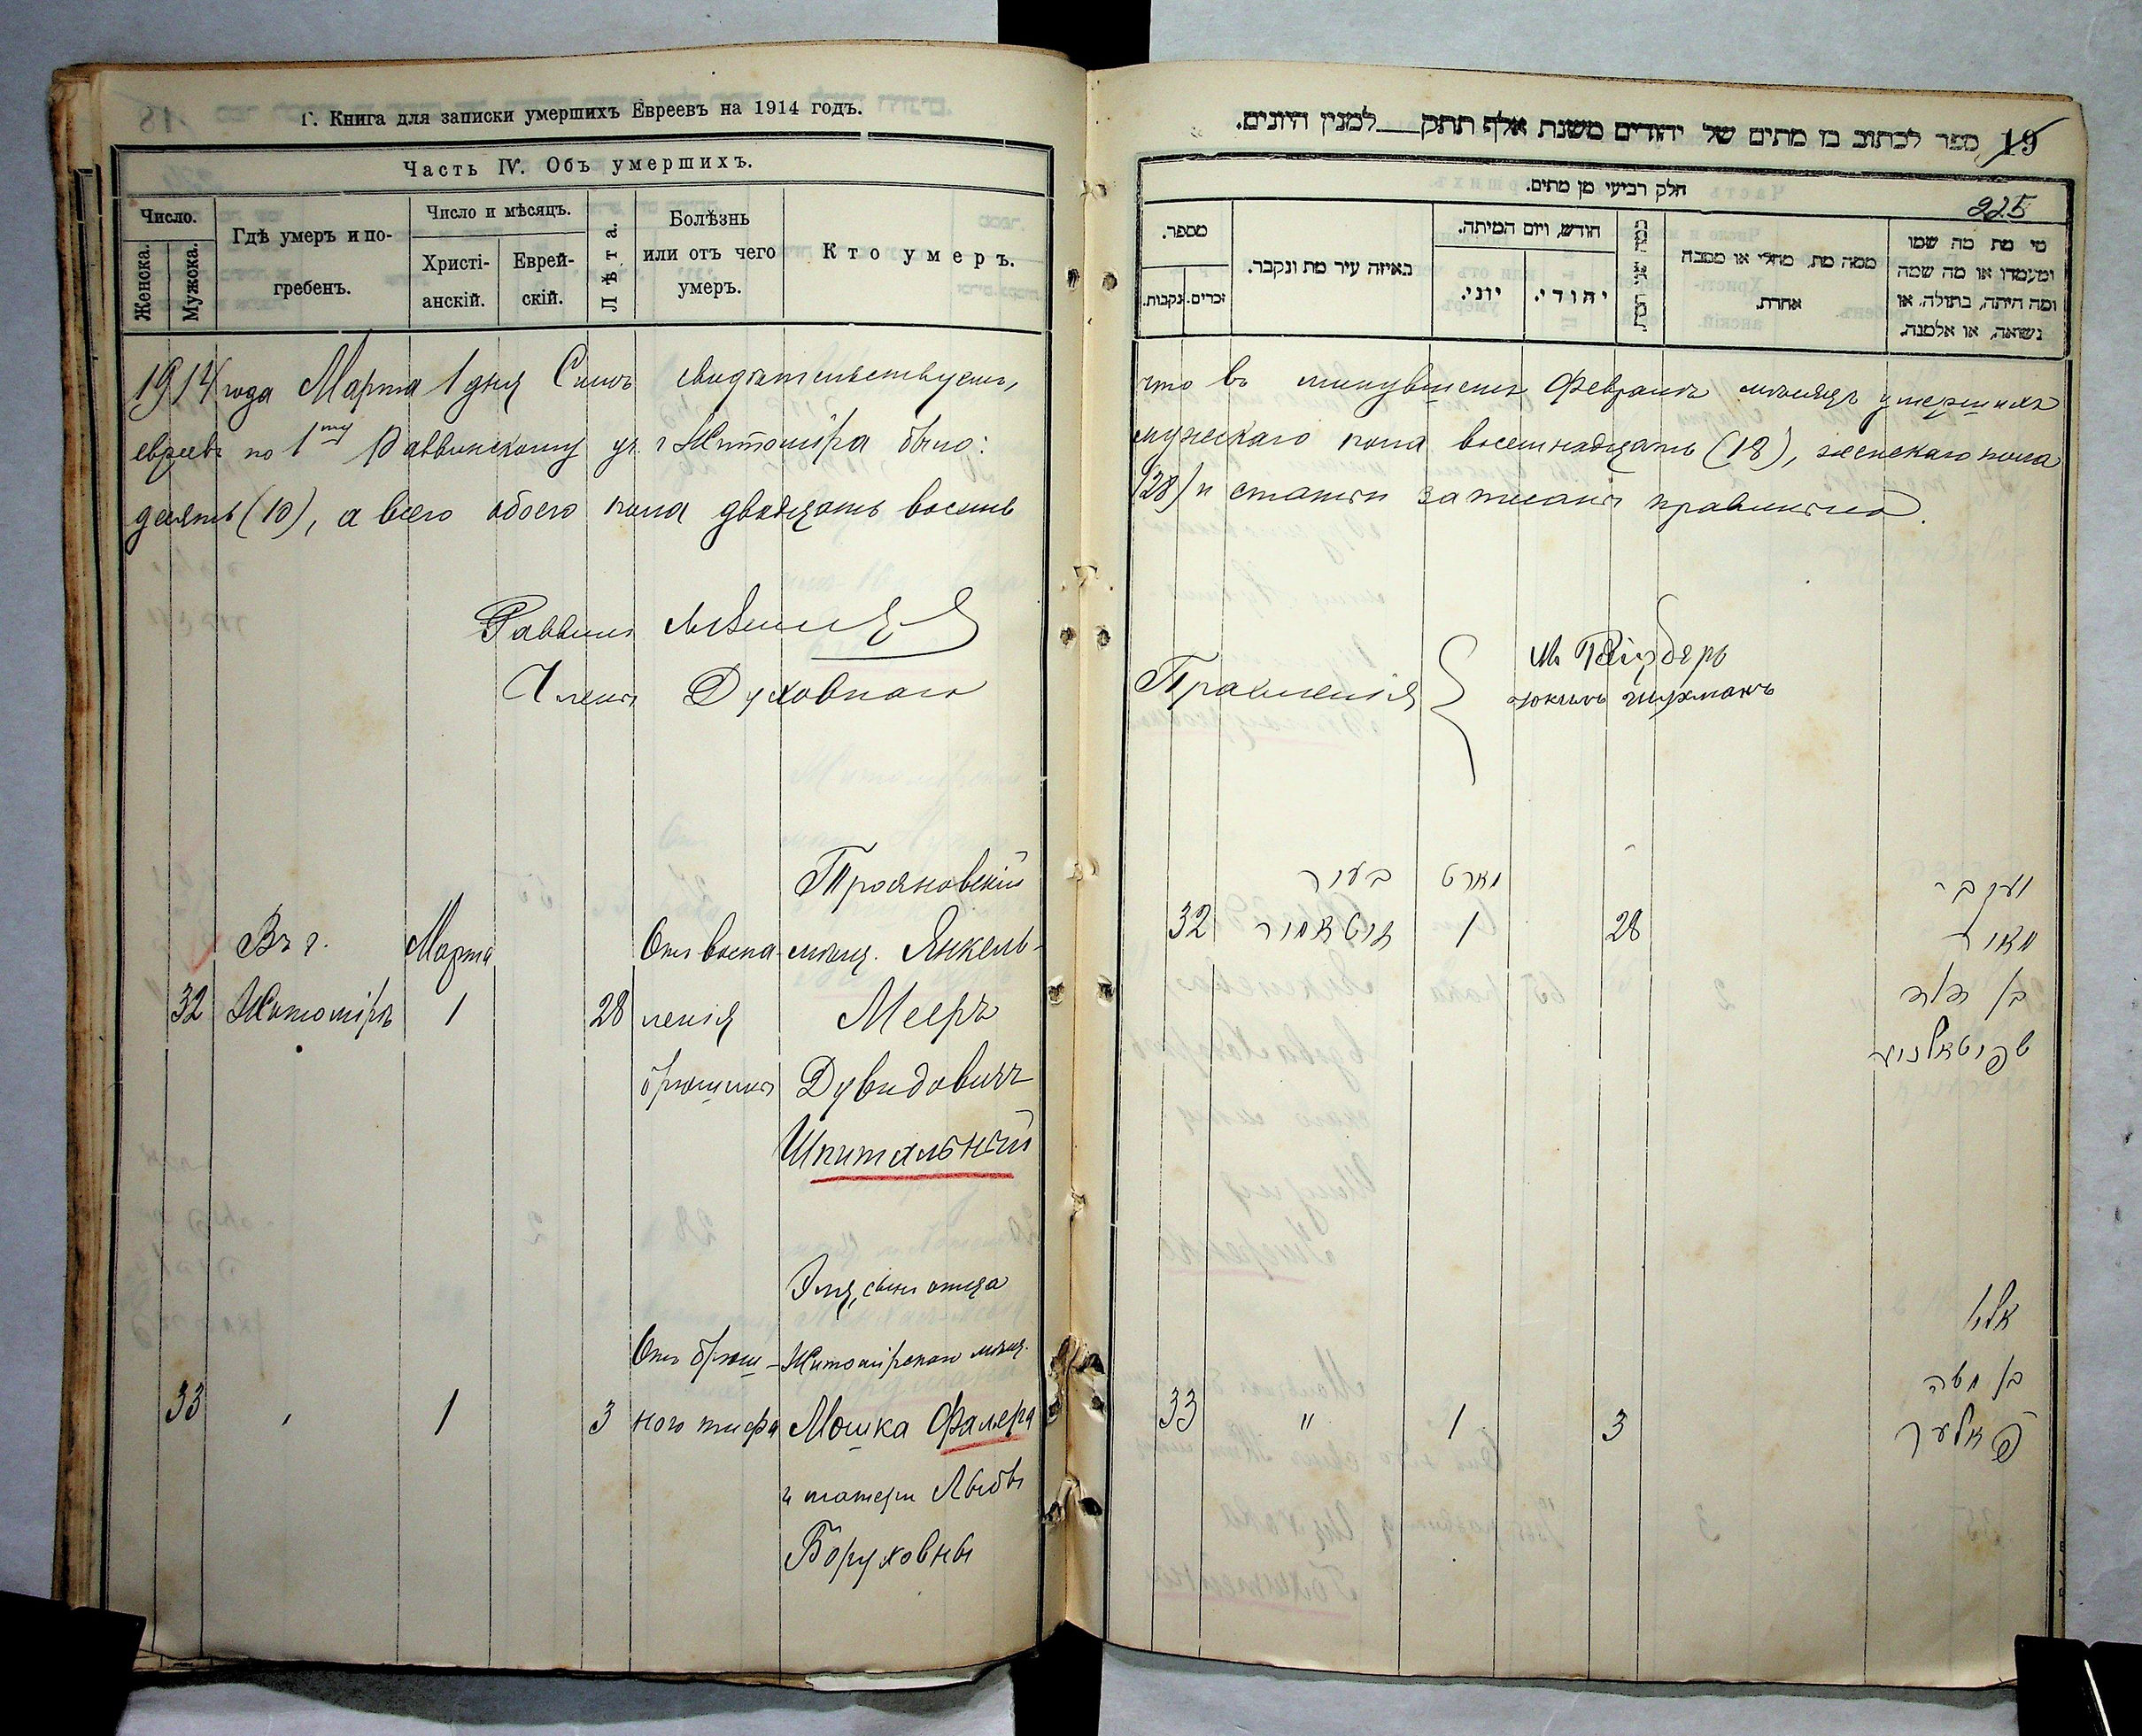 Г. Книга для записки умершихъ Евреевъ на 1914 годъ.
Часть IV. Объ умершихъ.
Число.
Женска.
Мужска.
Гдѣ умеръ и по-
гребенъ.
Число и мѣсяцъ.
Христі-
анскій.
Еврей-
скій.
Лѣта.
Болѣзнь
или отъ чего
умеръ.
Кто умеръ.
1914 года Марта 1 дня Симъ свидѣтельствуемъ,
евреевъ по 1му Раввинскому уч. г Житомира было:
десять (10), а всего обоего пола двадцать восемь
Раввинъ
Члены Духовнаго
Трояновскій
Въ г. Марта Отъ воспа- мѣщ. Янкель-
32 Житомірѣ 1 28 ленія Мееръ
брюшины Дувидовичъ
Шпитальный
Эля, сынъ отца
Отъ брюш- Житомірскаго мѣщ.
33 " 1 3 ного тифа Мошка Фалера
и матери Любы
Боруховны
19 ספר לכתוב בו מתים של יהודים משנת אלף תתק למנין היונים.
225
חלק רביעי מן מתים.
מספר.
נקבות.
זכרים.
באיזה עיר מת ונקבר.
חודש, ויום המיתה.
יוני.
יהודי.
ממה מת, מחלי או מסבה
אחרת.
מי מת מה שמו
ומעמדו או מה שמה
ומה היתה, בתולה, או
נשואה, או אלמנה.
что въ минувшемъ Февралѣ мѣсяцѣ умершихъ
мужскаго пола восемнадцать (18), женскаго пола
(28) и статьи записаны правильно.
Правленія
בעיר מארט יענקב
32 זיטאמיר 1 28 מאיר
בן דוד
שפיטאלנוי
אלי'
בן משה
33 " 1 3 פאלער